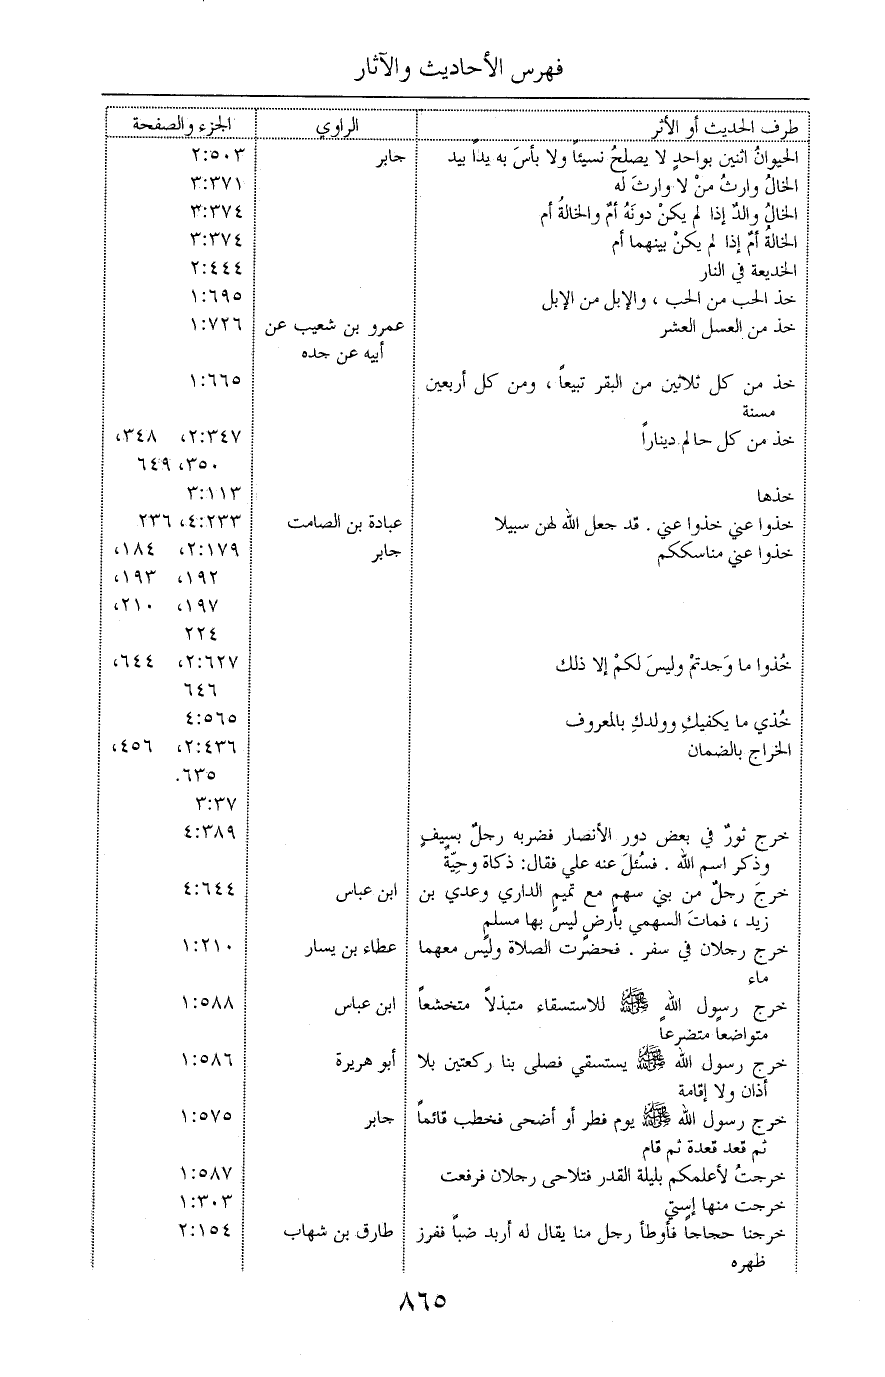 فهرس الأحاديث والآثار
طرف الحديث أو الأثر الراوي الجزء والصفحة
الحيوانُ اثنين بواحدٍ لا يصلحُ نسيئاً ولا بأسَ به يداً بيد جابر ٢:٥٠٣
الخالُ وارثُ منْ لا وارثَ له ٣:٣٧١
الخالُ والدٌ إذا لم يكنْ دونَهُ أمٌ والخالةُ أم ٣:٣٧٤
الخالةُ أمٌ إذا لم يكنْ بينهما أم ٣:٣٧٤
الخديعة في النار ٢:٤٤٤
خذ الحب من الحب ، والإبل من الإبل ١:٦٩٥
خذ من العسل العشر عمرو بن شعيب عن ١:٧٢٦
أبيه عن جده
خذ من كل ثلاثين من البقر تبيعاً ، ومن كل أربعين ١:٦٦٥
مسنة
خذ من كل حالم ديناراً ٢:٣٤٧، ٣٤٨،
٣٥٠، ٦٤٩
خذها ٣:١١٣
خذوا عني خذوا عني . قد جعل الله لهن سبيلا عبادة بن الصامت ٤:٢٣٣، ٢٣٦
خذوا عني مناسككم جابر ٢:١٧٩، ١٨٤،
١٩٢، ١٩٣،
١٩٧، ٢١٠،
٢٢٤
خُذوا ما وَجدتمْ وليسَ لكمْ إلا ذلك ٢:٦٢٧، ٦٤٤،
٦٤٦
خُذي ما يكفيكِ وولدكِ بالمعروف ٤:٥٦٥
الخراج بالضمان ٢:٤٣٦، ٤٥٦،
٦٣٥.
٣:٣٧
خرج ثورٌ في بعض دور الأنصار فضربه رجلٌ بسيفٍ ٤:٣٨٩
وذكر اسم الله . فسُئلَ عنه علي فقال: ذكاة وحِيّةً
خرجَ رجلٌ من بني سهمٍ مع تميمٍ الداري وعدي بن ابن عباس ٤:٦٤٤
زيد ، فماتَ السهمي بأرضٍ ليسَ بها مسلم
خرج رجلان في سفر . فحضرت الصلاة وليس معهما عطاء بن يسار ١:٢١٠
ماء
خرج رسول الله ﷺ للاستسقاء متبذلاً متخشعاً ابن عباس ١:٥٨٨
متواضعاً متضرعاً
خرج رسول الله ﷺ يستسقي فصلى بنا ركعتين بلا أبو هريرة ١:٥٨٦
أذان ولا إقامة
خرج رسول الله ﷺ يوم فطر أو أضحى فخطب قائماً جابر ١:٥٧٥
ثم قعد قعدة ثم قام
خرجتُ لأعلمكم بليلة القدر فتلاحى رجلان فرفعت ١:٥٨٧
خرجت منها إستي ١:٣٠٣
خرجنا حجاجاً فأوطأ رجل منا يقال له أربد ضباً ففرز طارق بن شهاب ٢:١٥٤
ظهره
٨٦٥